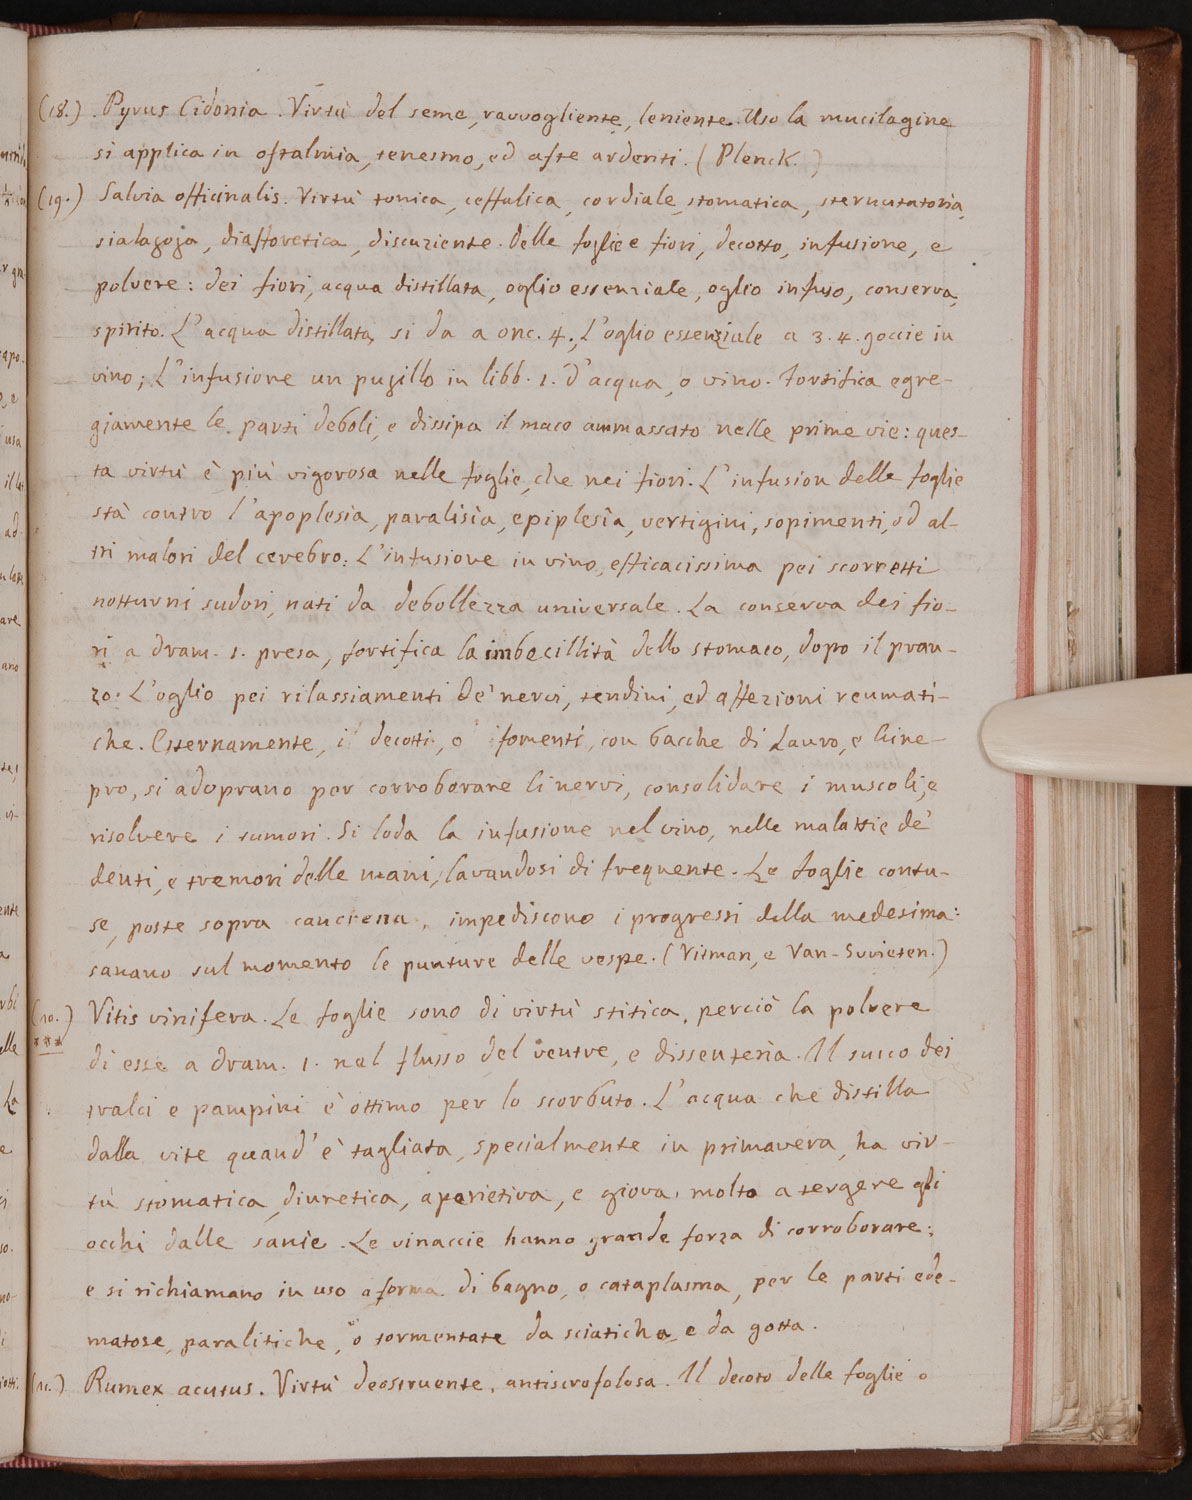 (18.) Pyrus Cidonia. Virtù del seme, ravvogliente, leniente. Uso la mucilagine
si applica in oftalmia, tenesmo, ed afte ardenti. (Plenck.)
(19.) Salvia officinalis. Virtù tonica, ceffalica, cordiale, stomatica, sternutatoria,
sialagoja, diafforetica, discuziente. Delle foglie e fiori, decotto, infusione, e
polvere: dei fiori, acqua distillata, oglio essenziale, oglio infuso, conserva,
spirito. L'acqua distillata, si da a onc. 4., L'oglio essenziale a 3. 4. goccie in
vino; L'infusione un pugillo in libb. 1. d'acqua, o vino. Fortifica egre-
giamente le parti deboli, e dissipa il maco ammassato nelle prime vie: ques-
ta virtù è più vigorosa nelle foglie, che nei fiori. L'infusion delle foglie
stà contro l'apoplesia, paralisìa, epiplesìa, vertigini, sopimenti, ed al-
tri malori del cerebro: L'infusione in vino, efficacissima pei scorretti
notturni sudori, nati da debollezza universale. La conserva dei fio-
ri a dram. 1. presa, fortifica la imbecillità dello stomaco, dopo il pran-
zo: L'oglio pei rilassiamenti de' nervi, tendini, ed affezioni reumati-
che. Esternamente, i decotti, o fomenti, con bacche di Lauro, e Gine-
pro, si adoprano per corroborare li nervi, consolidare i muscoli, e
risolvere i tumori. Si loda la infusione nel vino, nelle malattie de'
denti, e tremori delle mani, lavandosi di frequente. Le foglie contu-
se, poste sopra cancrena, impediscono i progressi della medesima:
sanano sul momento le punture delle vespe. (Vitman, e Van-Suvieten.)
(20.) Vitis vinifera. Le foglie sono di virtù stitica, perciò la polvere
***
di esse a dram. 1. nel flusso del ventre, e dissenteria. Il succo dei
tralci e pampini è ottimo per lo scorbuto. L'acqua che distilla
dalla vite quand'è tagliata, specialmente in primavera, ha vir-
tù stomatica, diuretica, aperietiva, e giova molto a tergere gli
occhi dalle sanie. Le vinaccie hanno grande forza di corroborare;
e si richiamano in uso a forma di bagno, o cataplasma, per le parti ede-
matose, paralitiche, o tormentate da sciatica, e da gotta.
(21.) Rumex acutus. Virtù deostruente, antiscrofolosa. Il decoto delle foglie o